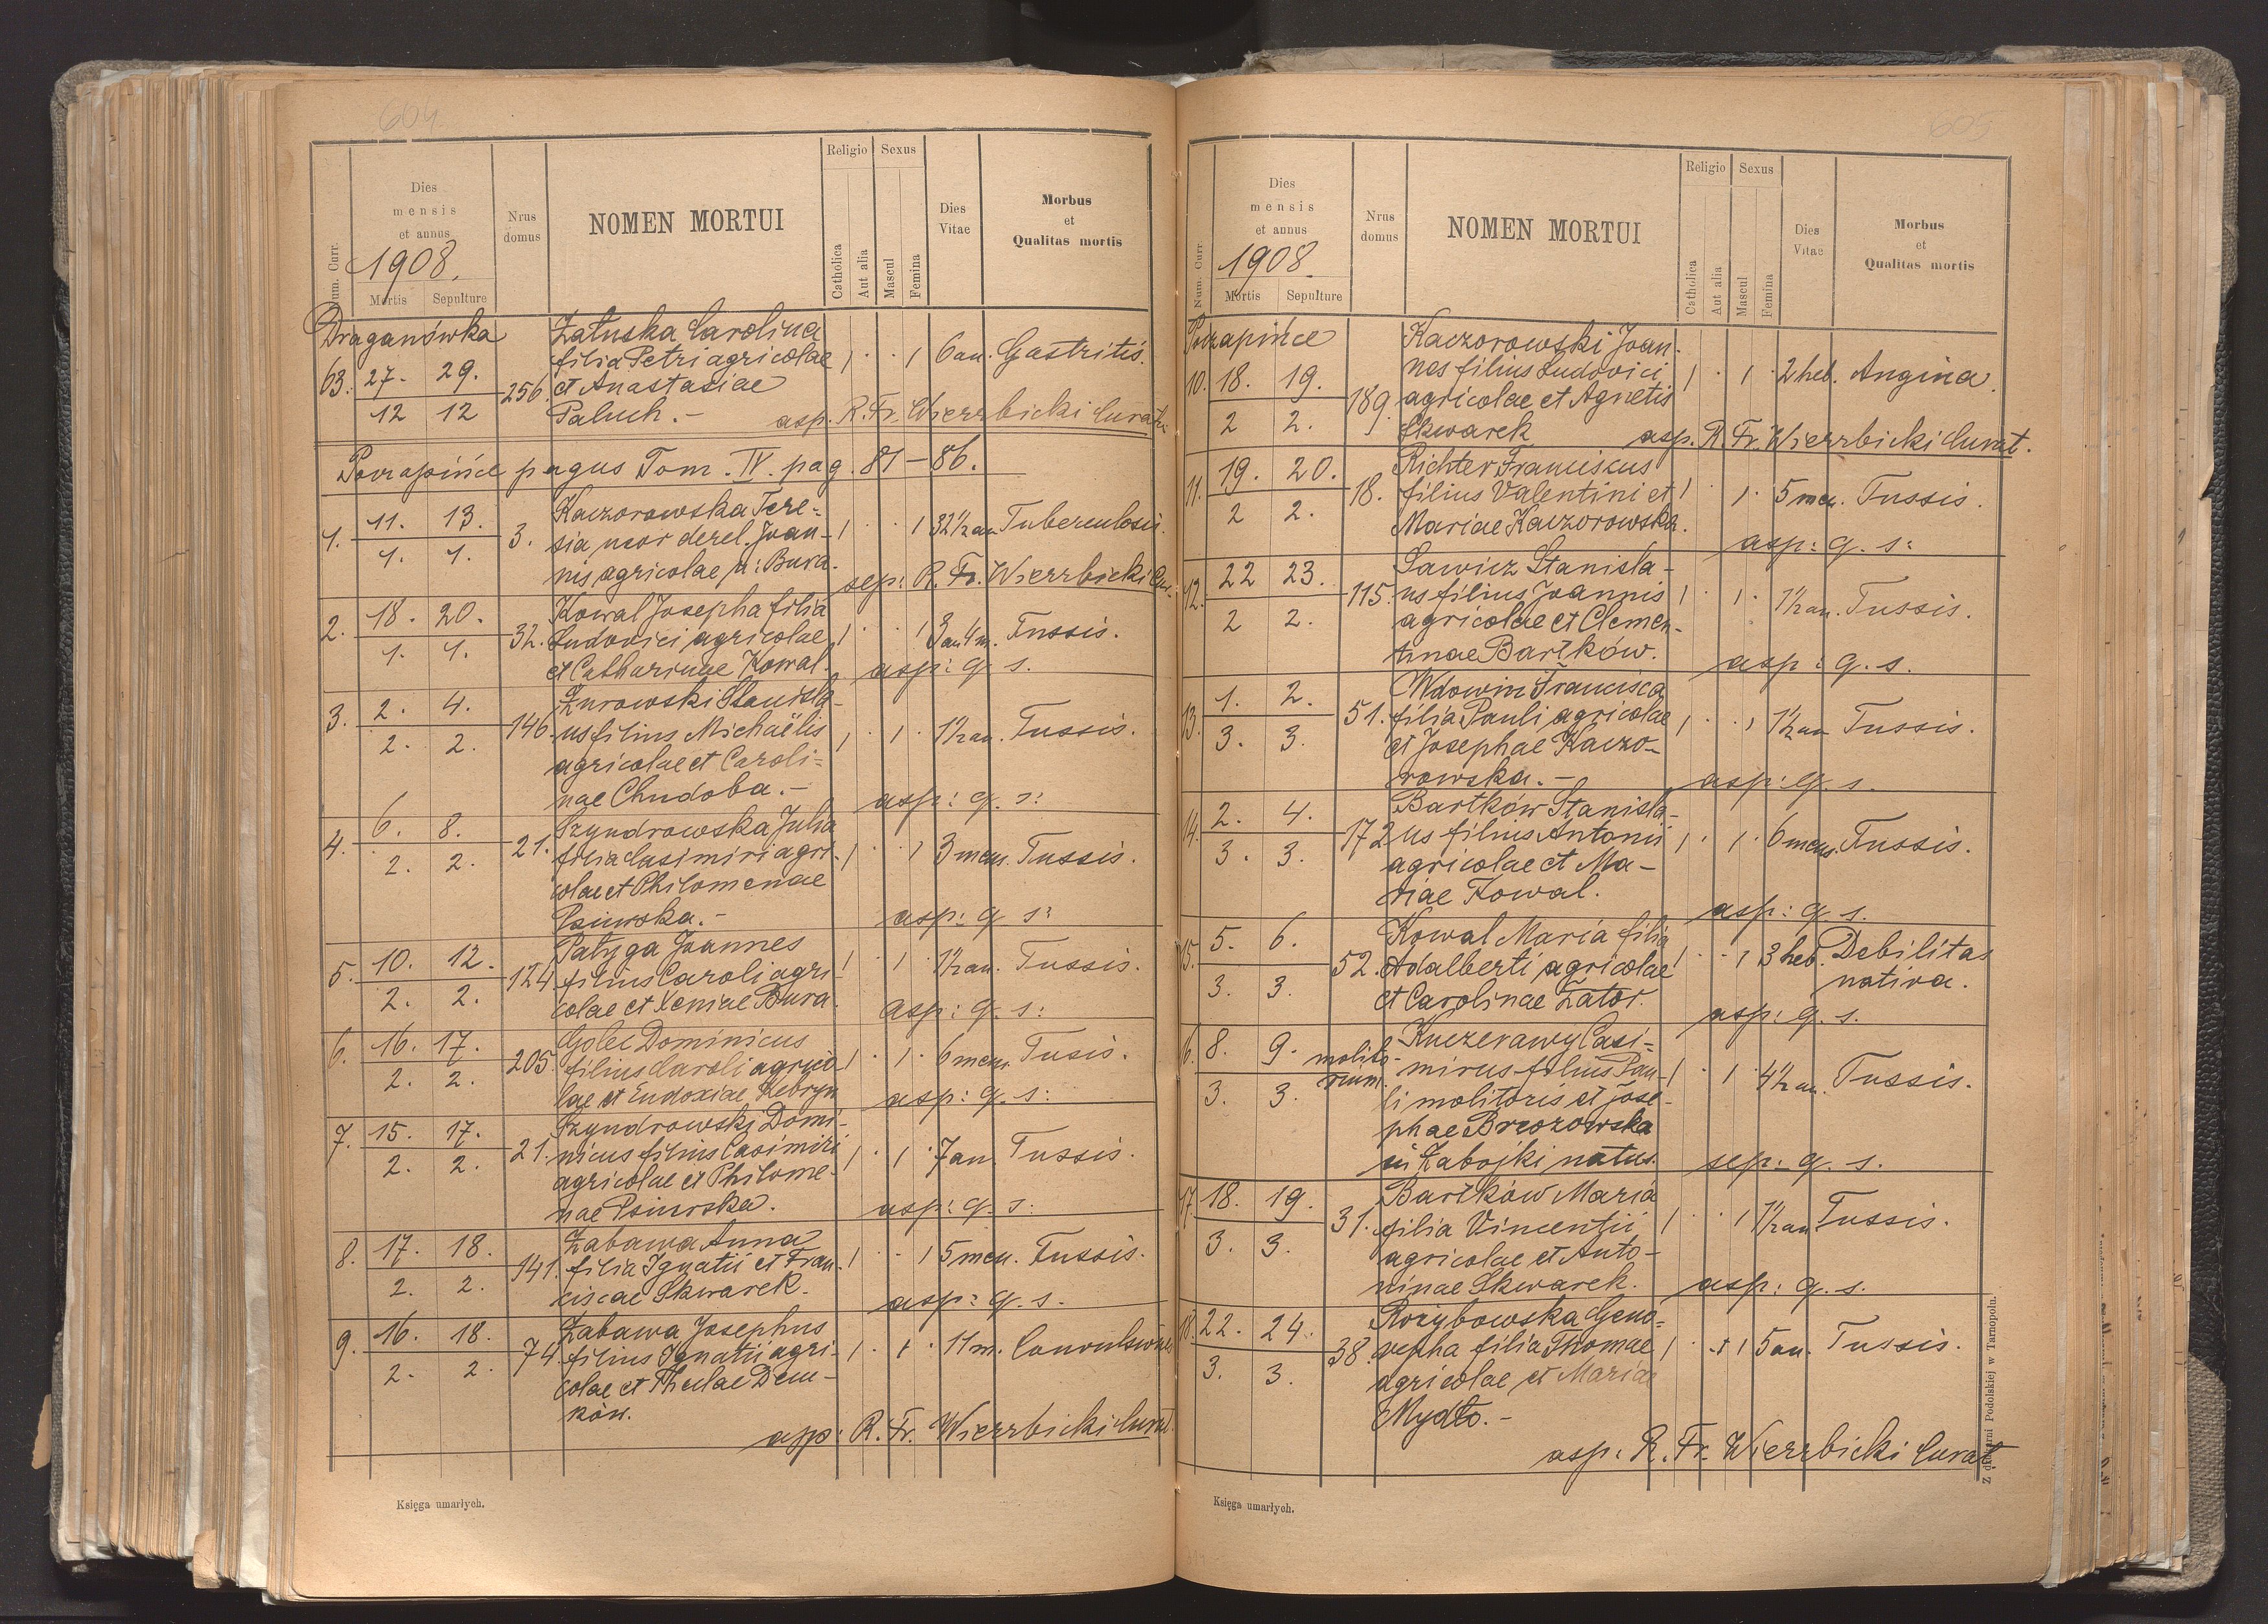 604
Religio Sexus
Dies
mensis
et annus
1908.
Nrus
domus
NOMEN MORTUI
Dies
Vitae
Morbus
et
Qualitas mortis
Num. Curr.
Mortis Sepulture
Catholica
Aut alia
Mascul
Femina
Draganówka Załuska Carolina
63. 27. 29. filia Petri agricolae 1 . . 1 6 an. Gastritis.
12 12 256. et Anastasiae
Paluch. - asp. R. Fr. Wierzbicki Curat.
Poczapińce pagus Tom. IV. pag. 81-86.
1. 11. 13. Kaczorowska Tere-
1. 1. 3. sia, uxor derel. Joan- 1 . . 1 32 1/2 an Tuberculosis.
nis agricolae, n: Bura. sep: R. Fr. Wierzbicki Cur.
2. 18. 20. Kowal Josepha filia
1. 1. 32. Ludovici agricolae 1 . . 1 3 an 4 m. Tussis.
et Catharinae Kowal. asp: q. s.
3. 2. 4. Żurowski Stanisla-
2. 2. 146. us filius Michaëlis 1 . 1 . 1 1/2 an. Tussis.
agricolae et Caroli-
nae Chudoba. - asp: q. s:
4. 6. 8. Szyndrowska Julia
2. 2. 21. filia Casimiri agri- 1 . . 1 3 mens. Tussis.
colae et Philomenae
Psiurska. - asp: q. s:
5. 10. 12. Patyga Joannes
2. 2. 124. filius Caroli agri- 1 . 1 . 1 1/2 an. Tussis.
colae et Xeniae Bura. asp: q. s:
6. 16. 17. Golec Dominicus
2. 2. 205. filius Caroli agrico- 1 . 1 . 6 mens. Tusis.
lae et Eudoxiae Hebryn asp: q. s:
7. 15. 17. Szyndrowski Domi-
2. 2. 21. nicus filius Casimiri 1 . 1 . 7 an. Tussis.
agricolae et Philome-
nae Psiurska. asp: q. s:
8. 17. 18. Zabawa Anna
2. 2. 141. filia Ignatii et Fran- 1 . . 1 5 men. Tussis.
ciscae Skwarek. asp: q. s.
9. 16. 18. Zabawa Josephus
2. 2. 74. filius Ignatii agri- 1 . 1 . 11 m. Convulsiones
colae et Theclae Dem-
ków.
asp: R. Fr. Wierzbicki Curat.
Księga umarłych.
605
Religio Sexus
Dies
mensis
et annus
1908.
Nrus
domus
NOMEN MORTUI
Dies
Vitae
Morbus
et
Qualitas mortis
Num. Curr.
Mortis Sepulture
Catholica
Aut alia
Mascul
Femina
Poczapińce Kaczorowski Joan-
10. 18. 19. nes filius Ludovici 1 . 1 . 2 heb. Angina.
2 2. 189. agricolae et Agnetis
Skwarek asp. R. Fr. Wierzbicki Curat.
11. 19. 20. Richter Franciscus
2 2. 18. filius Valentini et 1 . 1 . 5 men. Tussis.
Mariae Kaczorowska. asp: q. s:
12. 22 23. Sawicz Stanisla-
2 2. 115. us filius Joannis 1 . 1 . 1 1/2 an. Tussis.
agricolae et Clemen-
tinae Bartków. asp: q. s.
13. 1. 2. Wdowin Francisca
3. 3. 51. filia Pauli agricolae 1 . . 1 1 1/2 an Tussis.
et Josephae Kaczo-
rowska. - asp: q. s.
14. 2. 4. Bartków Stanisla-
3. 3. 172 us filius Antonii 1 . 1 . 6 mens. Tussis.
agricolae et Ma-
riae Kowal. asp: q. s.
15. 5. 6. Kowal Maria filia
3. 3. 52. Adalberti agricolae 1 . . 1 3 heb. Debilitas
et Carolinae Zator. nativa.
asp: q. s.
16. 8. 9. molito- Kuczerawy Casi-
3. 3. rium. mirus filius Pau- 1 . 1 . 4 1/2 an. Tussis.
li molitoris et Jose-
phae Brzozowska
in Zabojki natus. sep: q. s.
17. 18. 19. Bartków Maria
3. 3. 31. filia Vincentii 1 . . 1 1 1/2 an Tussis.
agricolae et Anto-
ninae Skwarek. asp: q. s.
18. 22. 24. Rozybowska Geno-
3. 3. 38. vepha filia Thomae 1 . . 1 5 an. Tussis.
agricolae et Mariae
Mydło. -
asp: R. Fr. Wierzbicki Curat.
Księga umarłych.
Z drukarni Podolskiej w Tarnopolu.